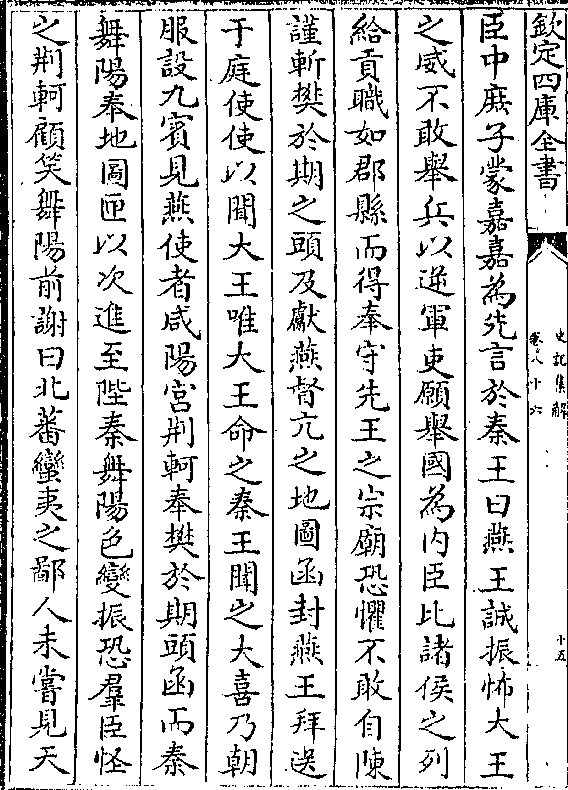 欽定四庫全書
史記集解
卷八十六
十五
臣中庶子蒙嘉嘉為先言於秦王曰燕王誠振怖大王
之威不敢舉兵以逆軍吏願舉國為内臣比諸侯之列
給貢職如郡縣而得奉守先王之宗廟恐懼不敢自陳
謹斬樊於期之頭及獻燕督亢之地圖函封燕王拜送
于庭使使以聞大王唯大王命之秦王聞之大喜乃朝
服設九賓見燕使者咸陽宮荆軻奉樊於期頭函而秦
舞陽奉地圖匣以次進至陛秦舞陽色變振恐羣臣怪
之荆軻顧笑舞陽前謝曰北蕃蠻夷之鄙人未嘗見天